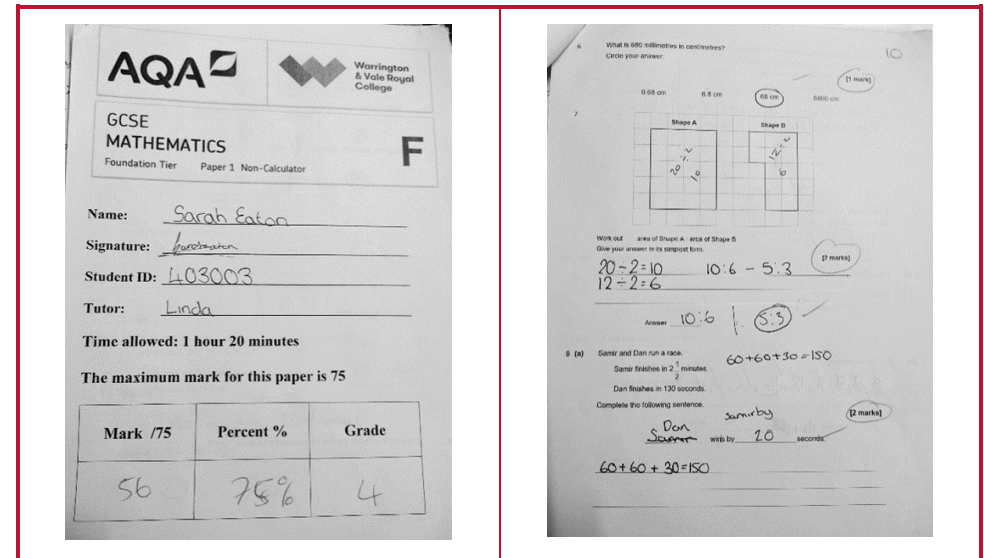 AQA
Warrington
& Vale Royal
College
GCSE
MATHEMATICS
F
Foundation Tier Paper 1 Non-Calculator
Name: Sarah Eaton
Signature:
Student ID: 403003
Tutor: Linda
Time allowed: 1 hour 20 minutes
The maximum mark for this paper is 75
Mark /75 Percent % Grade
56 75% 4
10
6 What is 680 millimetres in centimetres?
Circle your answer.
[1 mark]
0.68 cm 6.8 cm 68 cm 6800 cm
7
Shape A Shape B
20 ÷ 2 12 ÷ 2
10 6
Work out area of Shape A : area of Shape B
Give your answer in its simplest form.
[2 marks]
20÷2=10 10:6 - 5:3
12÷2=6
Answer 10:6 5:3
8 (a) Samir and Dan run a race. 60+60+30=150
Samir finishes in 2 1/2 minutes.
Dan finishes in 130 seconds.
Complete the following sentence.
[2 marks]
Samir by
Dan
Samir wins by 20 seconds.
60+60+30=150